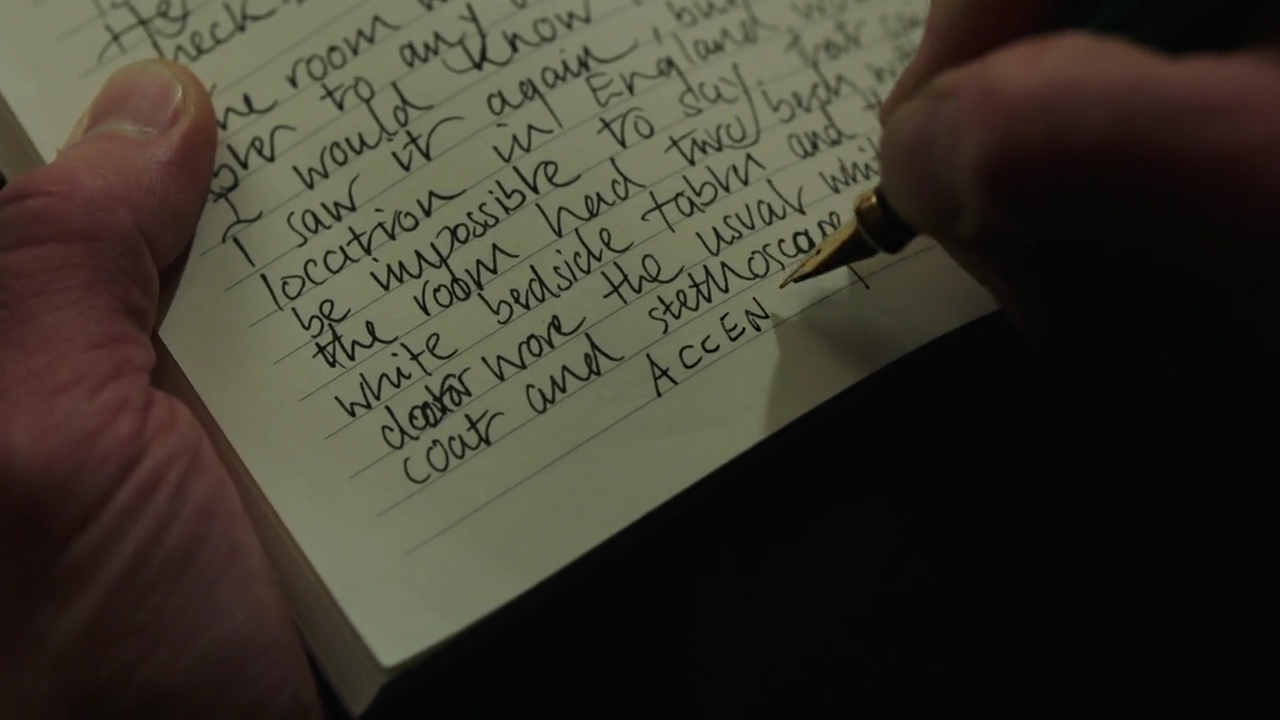 He
heck
he room
to any
I would know
I saw it again, but
location in England
be impossible to say that
the room had two beds
white bedside tables and
doctor wore the usual whi
coat and stethoscope
ACCEN